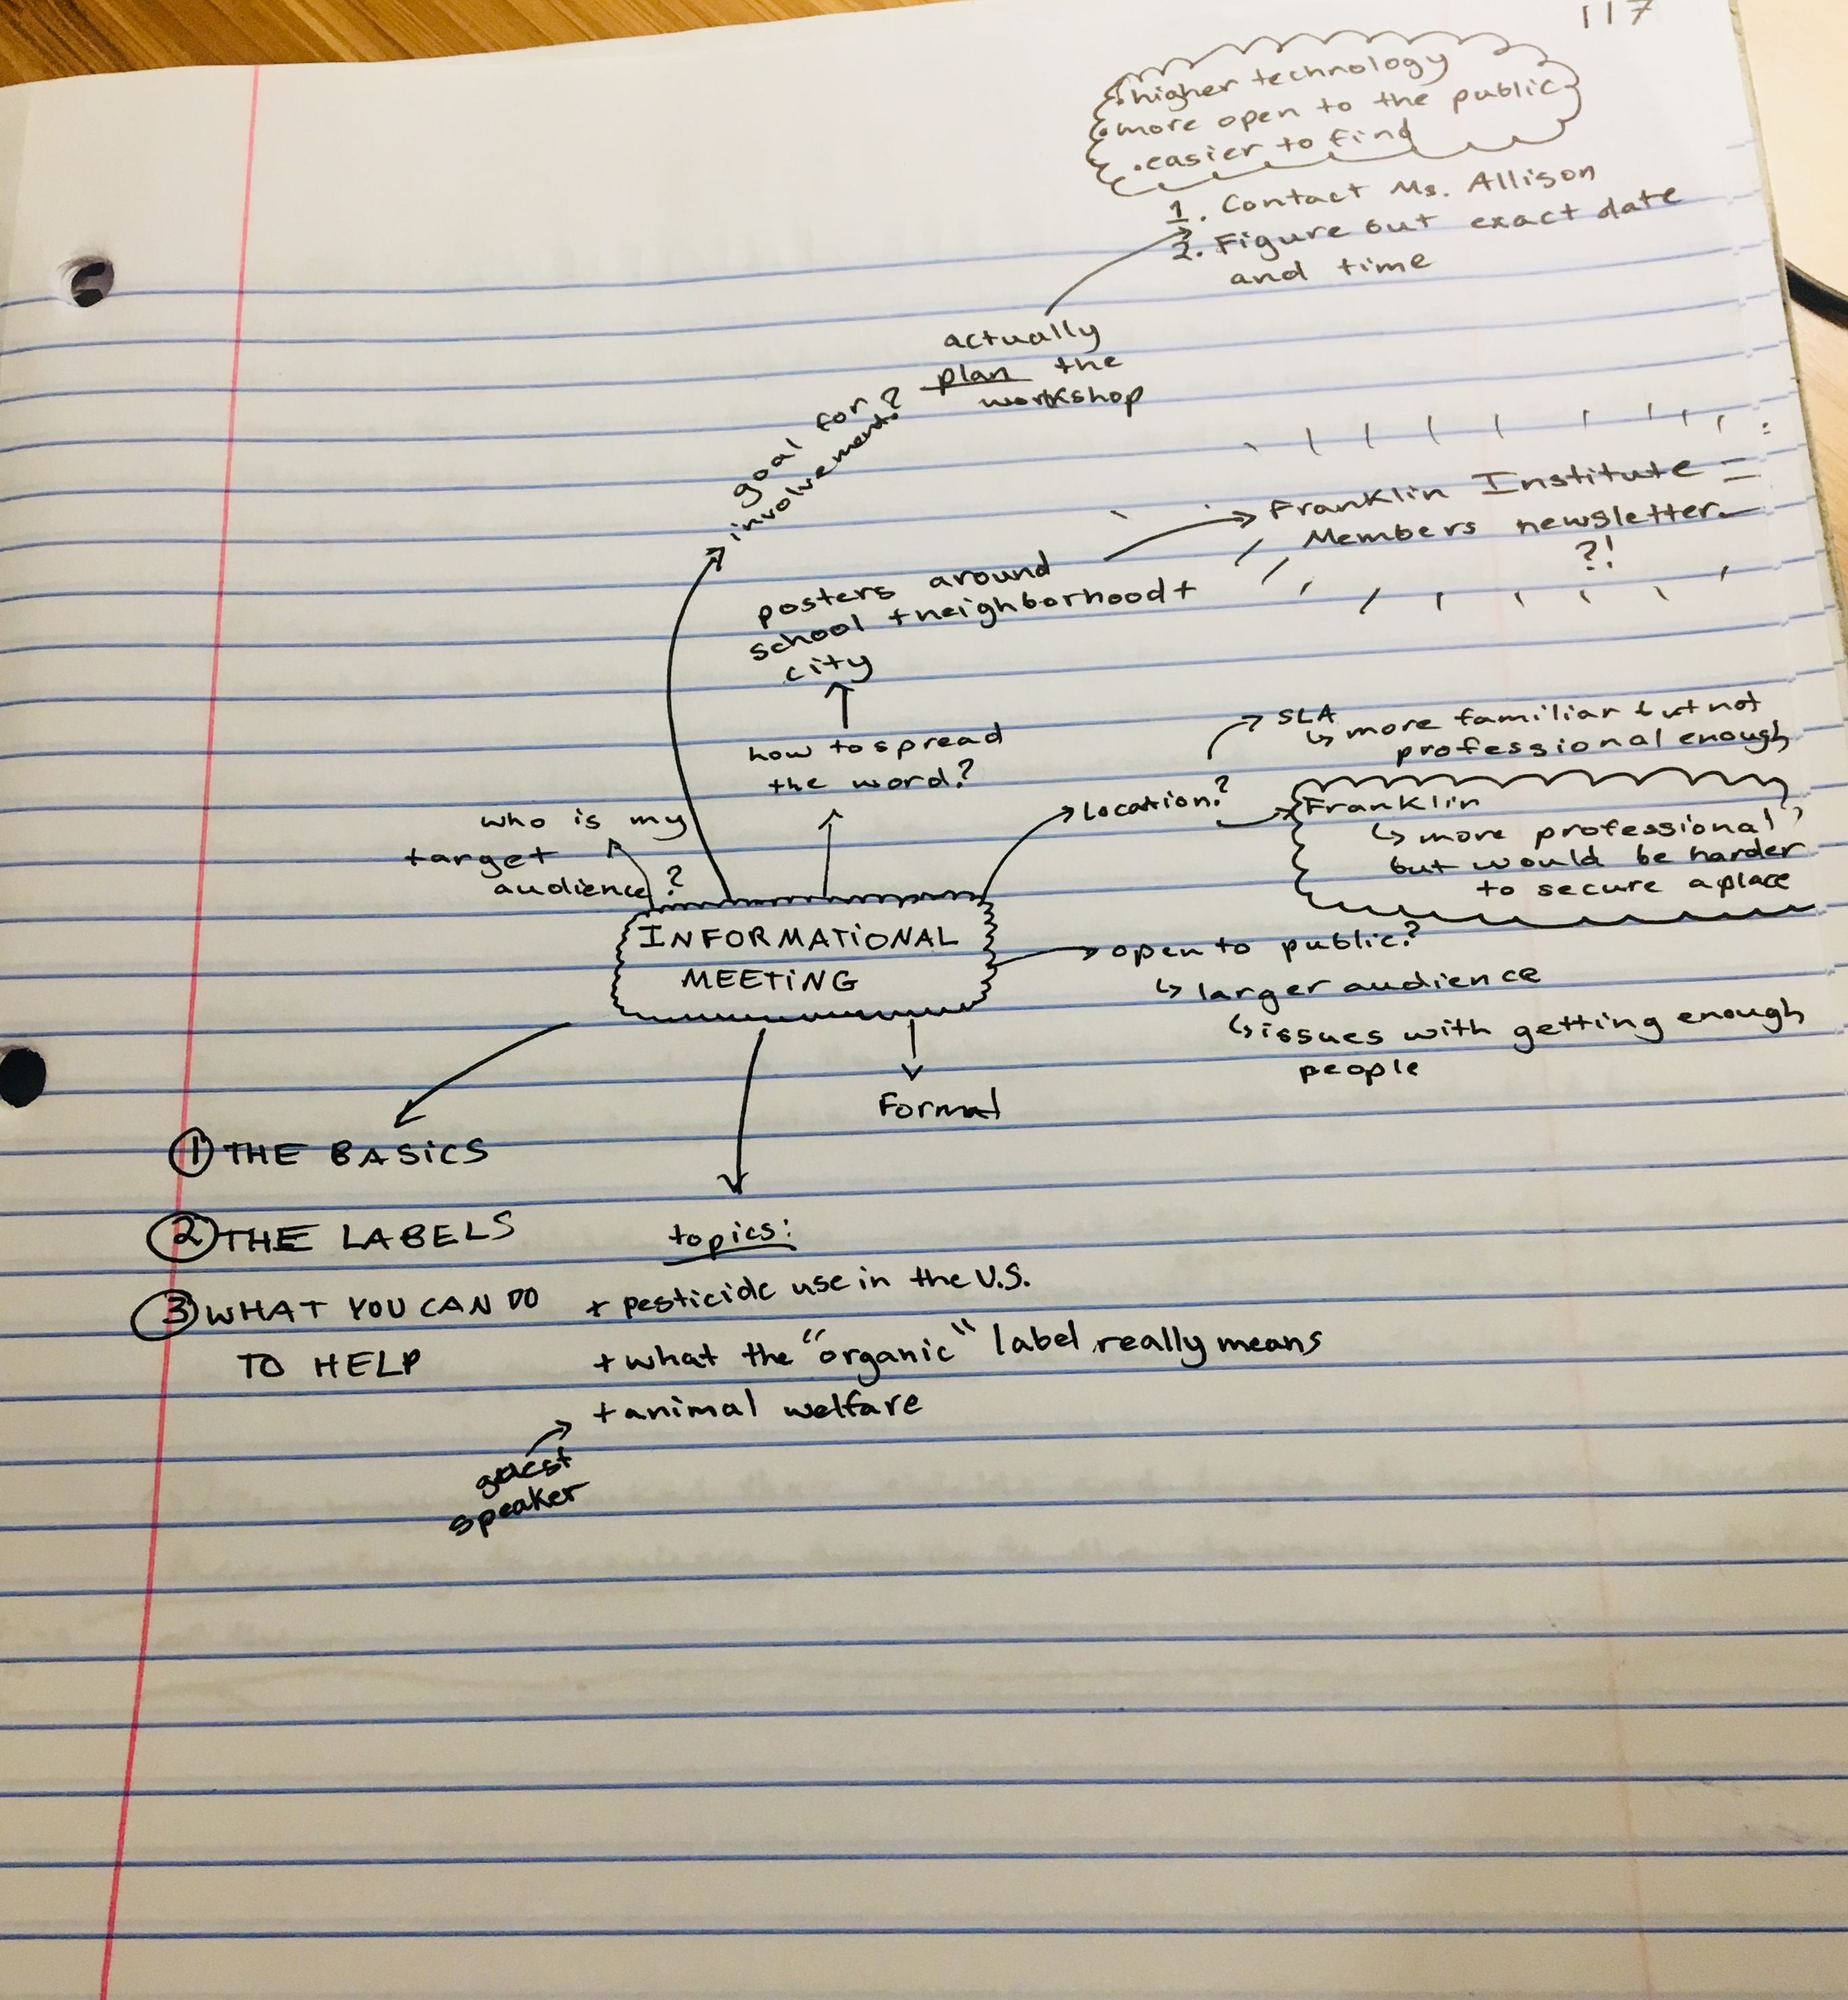 117
• higher technology
• more open to the public
• easier to find
1. Contact Ms. Allison
2. Figure out exact date
and time
actually
plan the
workshop
goal for
involvement?
Franklin Institute
Members newsletter
?!
posters around
school + neighborhood +
city
how to spread
the word?
SLA
↳ more familiar but not
professional enough
Location?
Franklin
↳ more professional
but would be harder
to secure a place
who is my
target
audience?
INFORMATIONAL
MEETING
open to public?
↳ larger audience
↳ issues with getting enough
people
Format
① THE BASICS
② THE LABELS
③ WHAT YOU CAN DO
TO HELP
topics:
+ pesticide use in the U.S.
+ what the "organic" label really means
+ animal welfare
guest
speaker